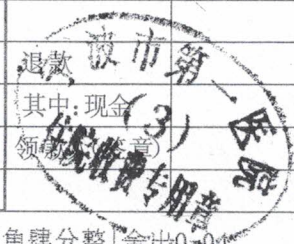 退款
其中:现金
领款人(签章)
波市第一医院
(3)
住院收费专用章
角肆分整